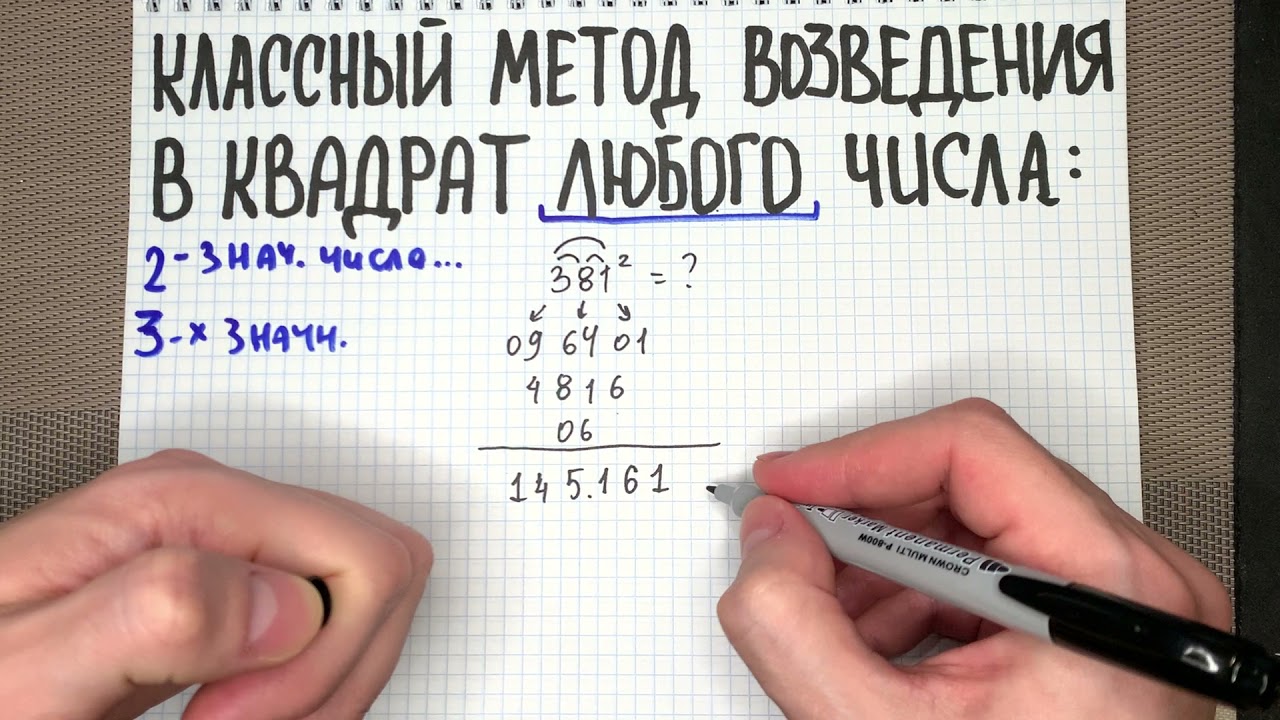 КЛАССНЫЙ МЕТОД ВОЗВЕДЕНИЯ
В КВАДРАТ ЛЮБОГО ЧИСЛА:
2-ЗНАЧ. ЧИСЛА...
3-х ЗНАЧН.
381² = ?
09 64 01
4 8 1 6
06
1 4 5.1 6 1
Permanent Marker
CROWN MULTI P-800W